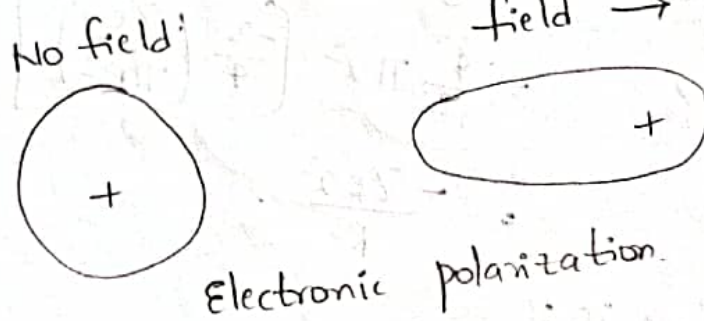 No field:
field →
+
+
Electronic polarization.